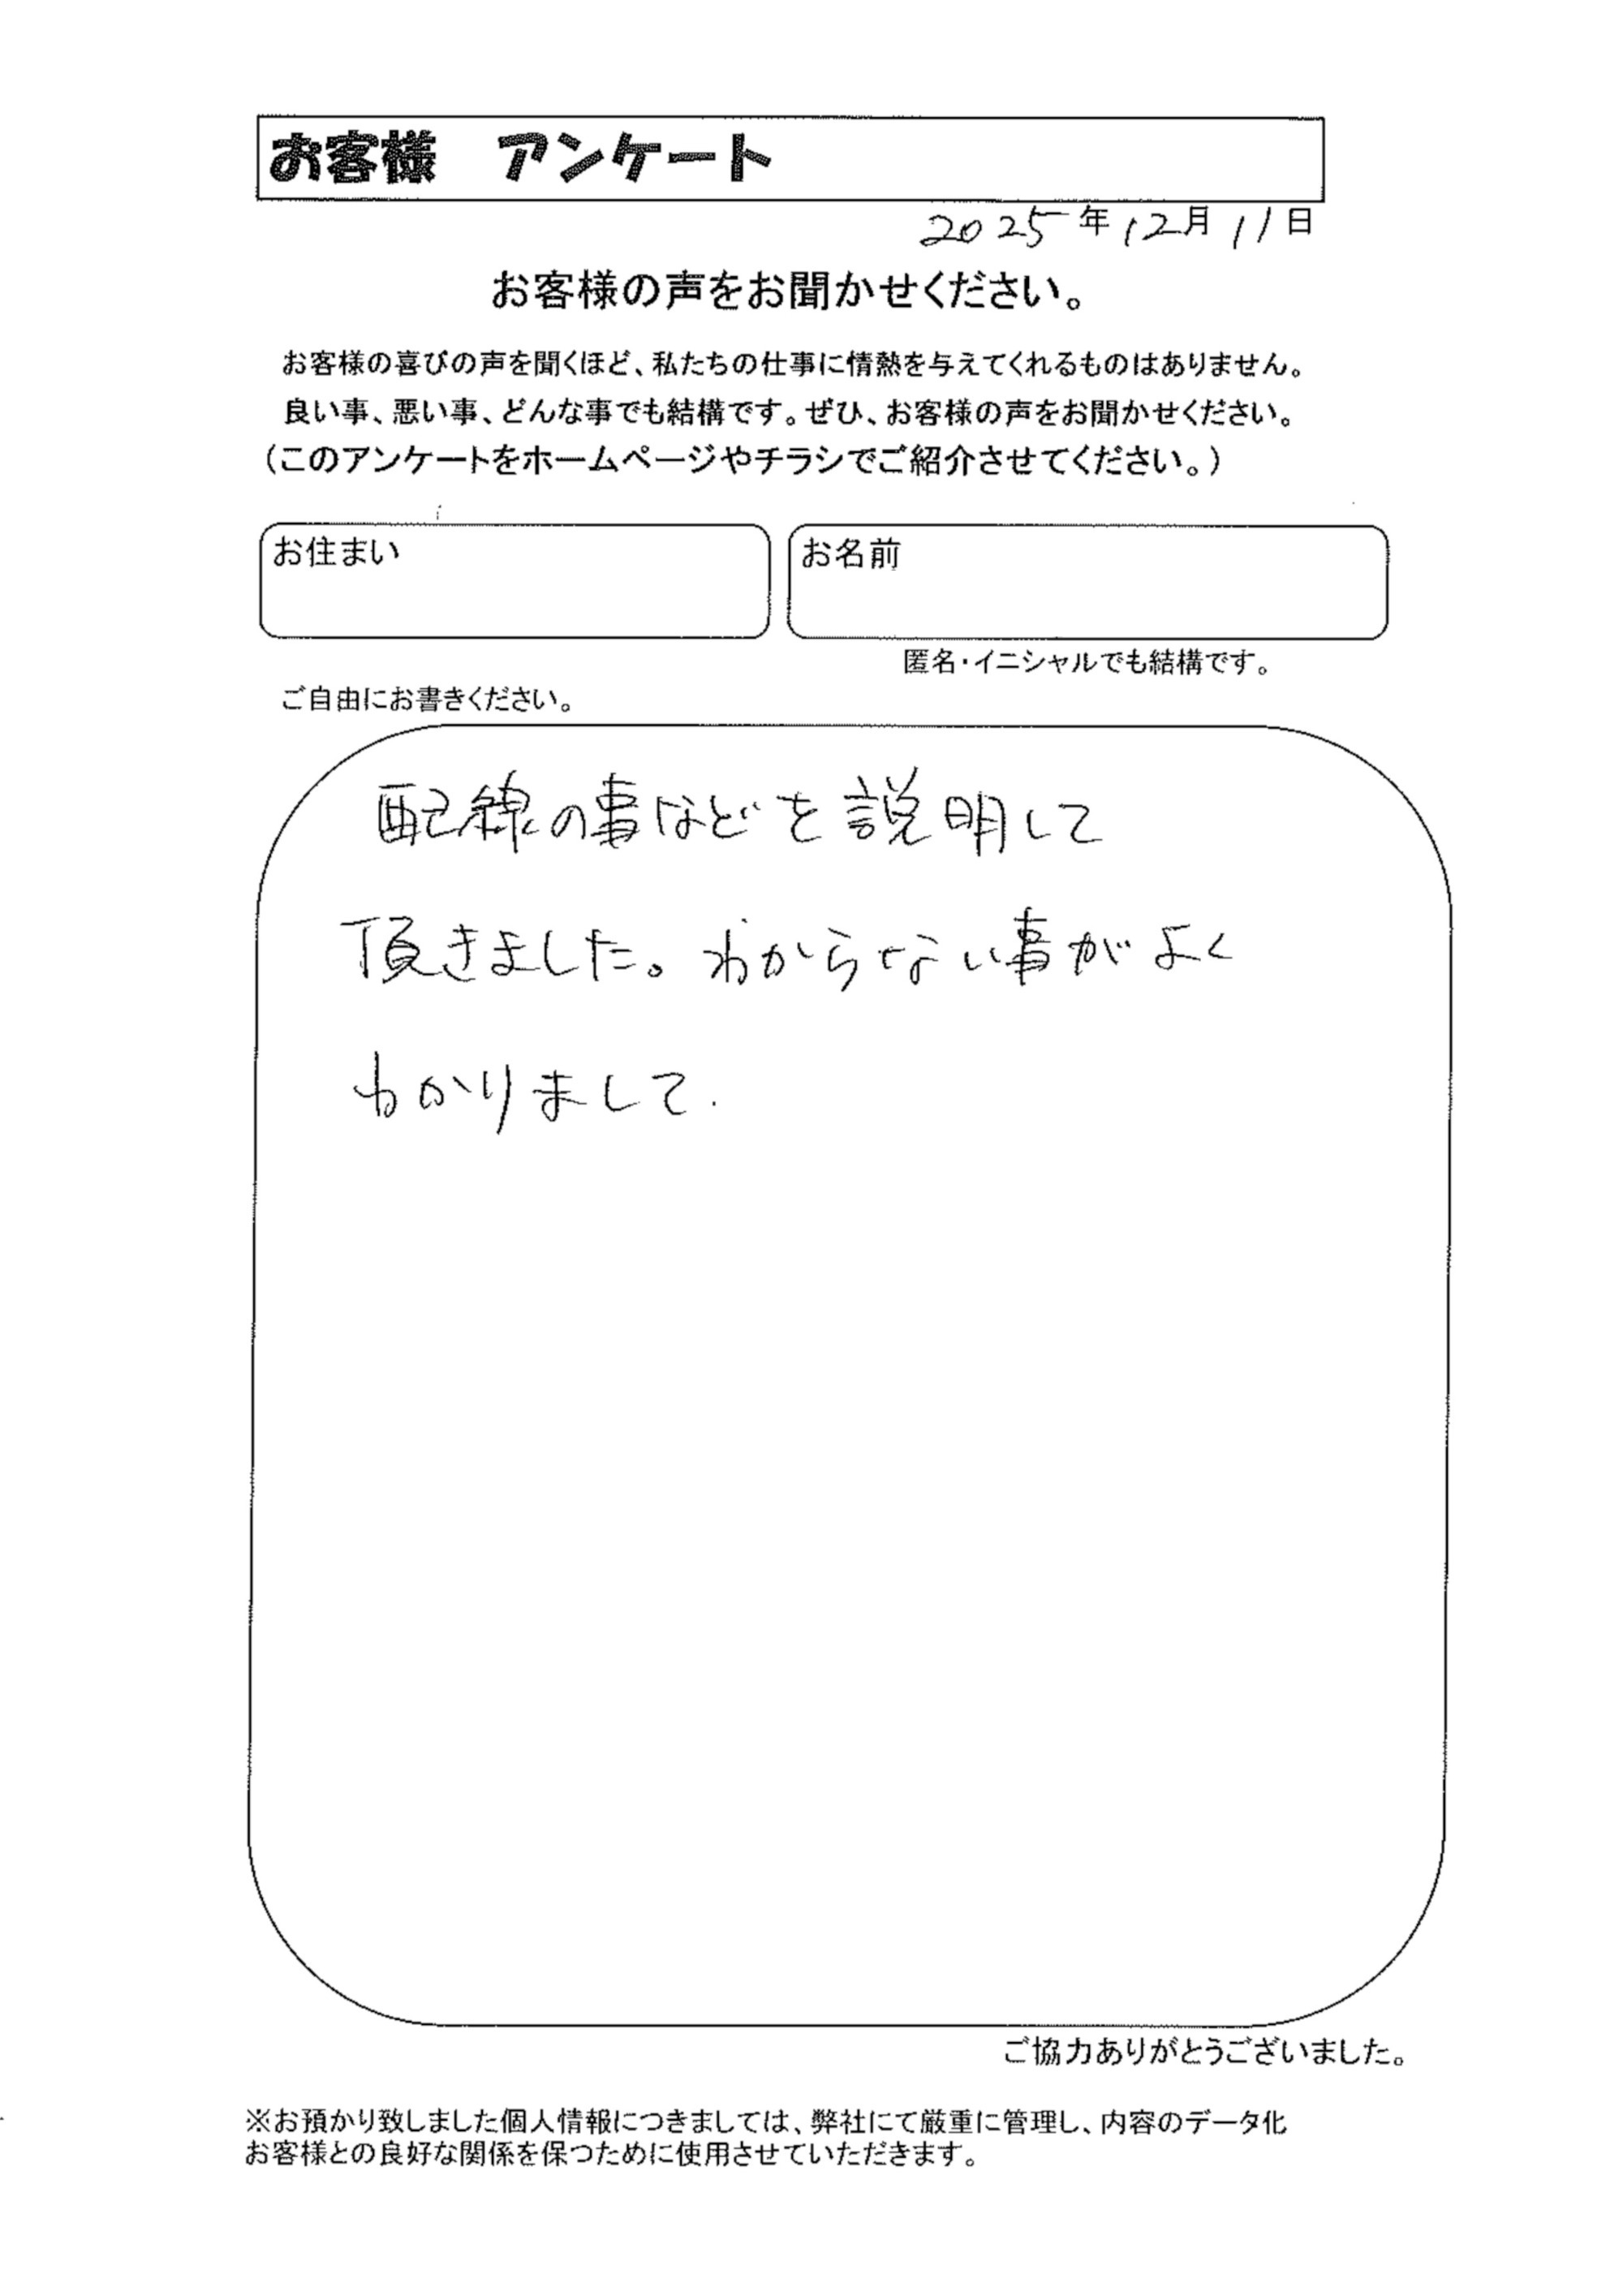 お客様　アンケート
2025年12月11日
お客様の声をお聞かせください。
お客様の喜びの声を聞くほど、私たちの仕事に情熱を与えてくれるものはありません。
良い事、悪い事、どんな事でも結構です。ぜひ、お客様の声をお聞かせください。
（このアンケートをホームページやチラシでご紹介させてください。）
お住まい
お名前
匿名・イニシャルでも結構です。
ご自由にお書きください。
配線の事などを説明して
頂きました。わからない事がよく
わかりまして.
ご協力ありがとうございました。
※お預かり致しました個人情報につきましては、弊社にて厳重に管理し、内容のデータ化
お客様との良好な関係を保つために使用させていただきます。